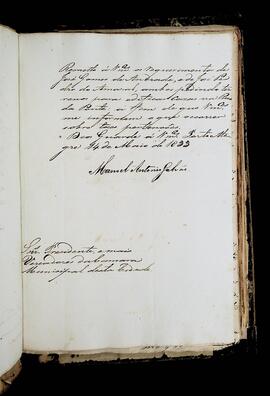 Remetto a V.ᵐᶜᵉˢ o requerimento de
José Gomes de Andrade, e de José Pe
dro do Amaral, ambos pedindo ter
renos para edificar Casas na
da Ponte, a fim de que Vmᶜᵉˢ
me informem o que occorrer
sobre taes pertenções.
Deos Guarde a V.ᵐᶜᵉˢ Porto Ale
gre 14 de Maio de 1833
Manoel Antonio Galvão
Snr. Presidente, e mais
Vereadores da Camara
Municipal desta Cidade